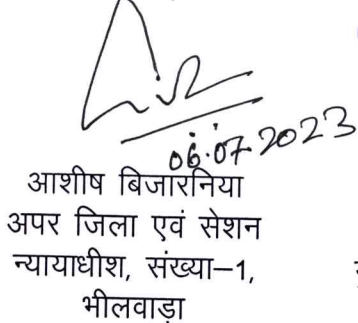 06.07.2023
आशीष बिजारनिया
अपर जिला एवं सेशन
न्यायाधीश, संख्या-1,
भीलवाड़ा